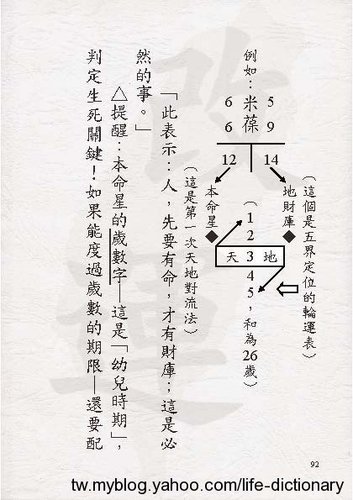 例如：米葆
6 5
6 9
12 14
（這個是五界定位的輪運表）
地財庫◆
本命星◆
（1 2 3 4 5，和為26歲）
天 地
（這是第一次天地對流法）
「此表示：人，先要有命，才有財庫；這是必
然的事。」
△提醒：本命星的歲數字—這是「幼兒時期」，
判定生死關鍵！如果能度過歲數的期限—還要配
92
改運
tw.myblog.yahoo.com/life-dictionary